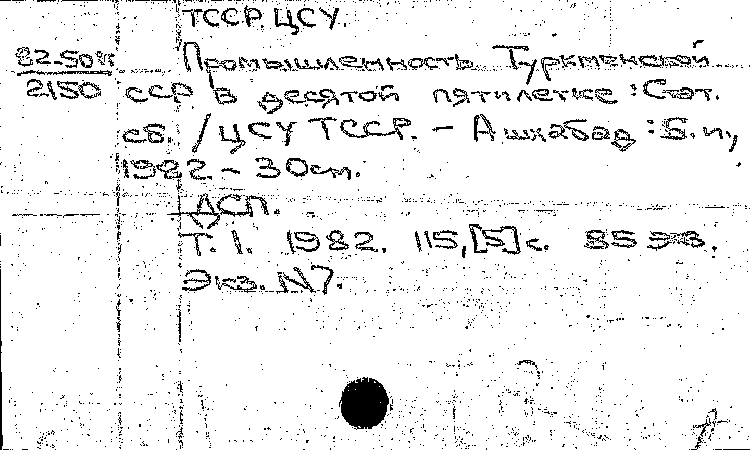 ТССР. ЦСУ.
Промышленность Туркменской
82-50 2150
ССР в десятой пятилетке : Стат.
сб. / ЦСУ ТССР. – Ашхабад : Б. и.,
1982 – 30 см.
ДСП.
Т. 1. 1982. 115, [5] с. 85 экз.
Экз. N7.